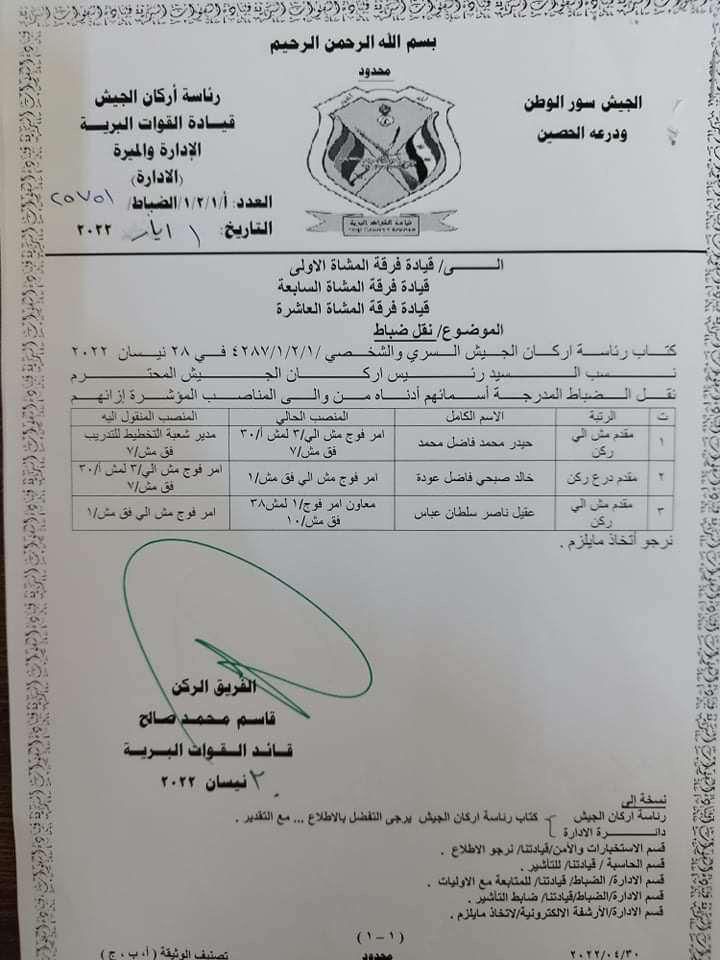 بسم الله الرحمن الرحيم
محدود
الجيش سور الوطن
ودرعه الحصين
رئاسة أركان الجيش
قيادة القوات البرية
الإدارة والميرة
(الادارة)
العدد: أ/١/٢/١/الضباط/ ٢٥٧٥١
التاريخ: ١ ايار ٢٠٢٢
قيادة القوات البرية
الـــى/ قيادة فرقة المشاة الاولى
قيادة فرقة المشاة السابعة
قيادة فرقة المشاة العاشرة
الموضوع/ نقل ضباط
كتاب رئاسة اركان الجيش السري والشخصي /١/٢/١/ ٤٢٨٧ في ٢٨ نيسان ٢٠٢٢
نسب السيد رئيس اركان الجيش المحترم
نقل الضباط المدرجة أسمائهم أدناه من والى المناصب المؤشرة إزائهم
ت الرتبة الاسم الكامل المنصب الحالي المنصب المنقول اليه
١ مقدم مش الي ركن حيدر محمد فاضل محمد امر فوج مش الي/٣ لمش أ/٣٠ فق مش/٧ مدير شعبة التخطيط للتدريب فق مش/٧
٢ مقدم درع ركن خالد صبحي فاضل عودة امر فوج مش الي فق مش/١ امر فوج مش الي/٣ لمش أ/٣٠ فق مش/٧
٣ مقدم مش الي ركن عقيل ناصر سلطان عباس معاون امر فوج/١ لمش٣٨ فق مش/١٠ امر فوج مش الي فق مش/١
نرجو أتخاذ مايلزم .
الفريق الركن
قاسم محمد صالح
قائد القوات البرية
نيسان ٢٠٢٢
نسخة إلى
رئاسة اركان الجيش
دائرة الادارة
كتاب رئاسة اركان الجيش يرجى التفضل بالاطلاع ... مع التقدير .
قسم الاستخبارات والأمن/قيادتنا/ نرجو الاطلاع .
قسم الحاسبة / قيادتنا/ للتأشير .
قسم الادارة/ الضباط/ قيادتنا/ للمتابعة مع الاوليات .
قسم الادارة/الضباط/قيادتنا/ ضابط التأشير .
قسم الادارة/الأرشفة الالكترونية/لاتخاذ مايلزم .
(١-١)
٢٠٢٢/٠٤/٣٠
محدود
تصنيف الوثيقة (أ، ب، ج)